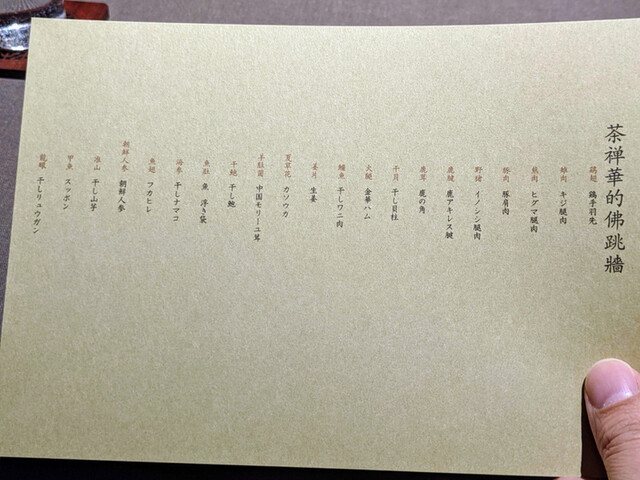 茶禅華的佛跳牆
鶏翅 鶏手羽先
雉肉 キジ腿肉
熊肉 ヒグマ腿肉
豚肉 豚肩肉
野猪 イノシシ腿肉
鹿腱 鹿アキレス腱
鹿茸 鹿の角
干貝 干し貝柱
火腿 金華ハム
鰐魚 干しワニ肉
姜片 生姜
夏草花 カソウカ
羊肚菌 中国モリーユ茸
干鮑 干し鮑
魚肚 魚 浮き袋
海参 干しナマコ
魚翅 フカヒレ
朝鮮人参 朝鮮人参
准山 干し山芋
甲魚 スッポン
龍眼 干しリュウガン